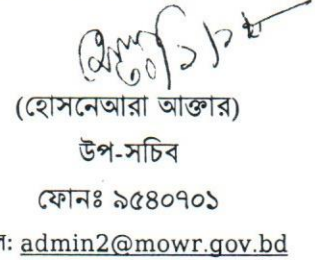 (হোসনেআরা আক্তার)
উপ-সচিব
ফোনঃ ৯৫৪০৭০১
admin2@mowr.gov.bd